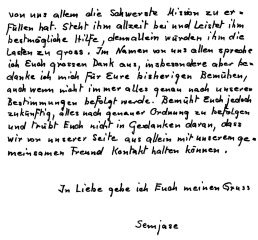 von uns allem die Schwerste Mission zu er-
füllen hat. Steht ihm allzeit bei und Leistet ihm
bestmögliche Hilfe, dem allein würden ihm die
Lasten zu gross. Im Namen von uns allen spreche
ich Euch grossen Dank aus, insbesondere aber be-
danke ich mich für Eure bisherigen Bemühen,
auch wenn nicht immer alles genau nach unseren
Bestimmungen befolgt werde. Bemüht Euch jedoch
zukünftig, alles nach genauer Ordnung zu befolgen
und trübt Euch nicht in Gedanken daran, dass
wir von unserer Seite aus allein mit unserem ge-
meinsamen Freund Kontakt halten können.
In Liebe gebe ich Euch meinen Gruss
Semjase